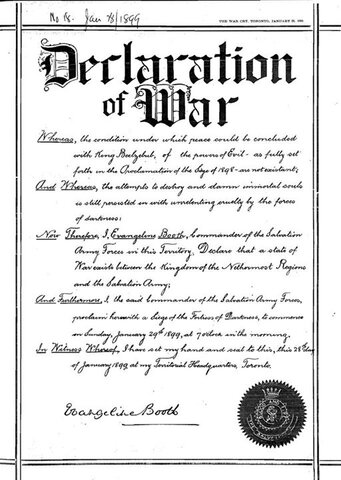 No 18. Jan 28/1899
THE WAR CRY, TORONTO, JANUARY 28, 1899
Declaration
of War
Whereas, the condition under which peace could be concluded
with King Beelzebub, of the powers of Evil - as fully set
forth in the Proclamation of the Siege of 1898 - are not existant;
And Whereas, the attempts to destroy and damn immortal souls
is still persisted in with unrelenting cruelty by the forces
of darkness:
Now Therefore, I, Evangeline Booth, Commander of the Salvation
Army Forces in this Territory, Declare that a state of
War exists between the Kingdom of the Nethermost Regions
and the Salvation Army;
And Furthermore, I, the said Commander of the Salvation Army Forces,
proclaim herewith a Siege of the Forces of Darkness, to commence
on Sunday, January 29th 1899, at 7 o'clock in the morning.
In Witness Whereof, I have set my hand and seal to this, this 28th day
of January 1899 at my Territorial Headquarters, Toronto.
Evangeline Booth